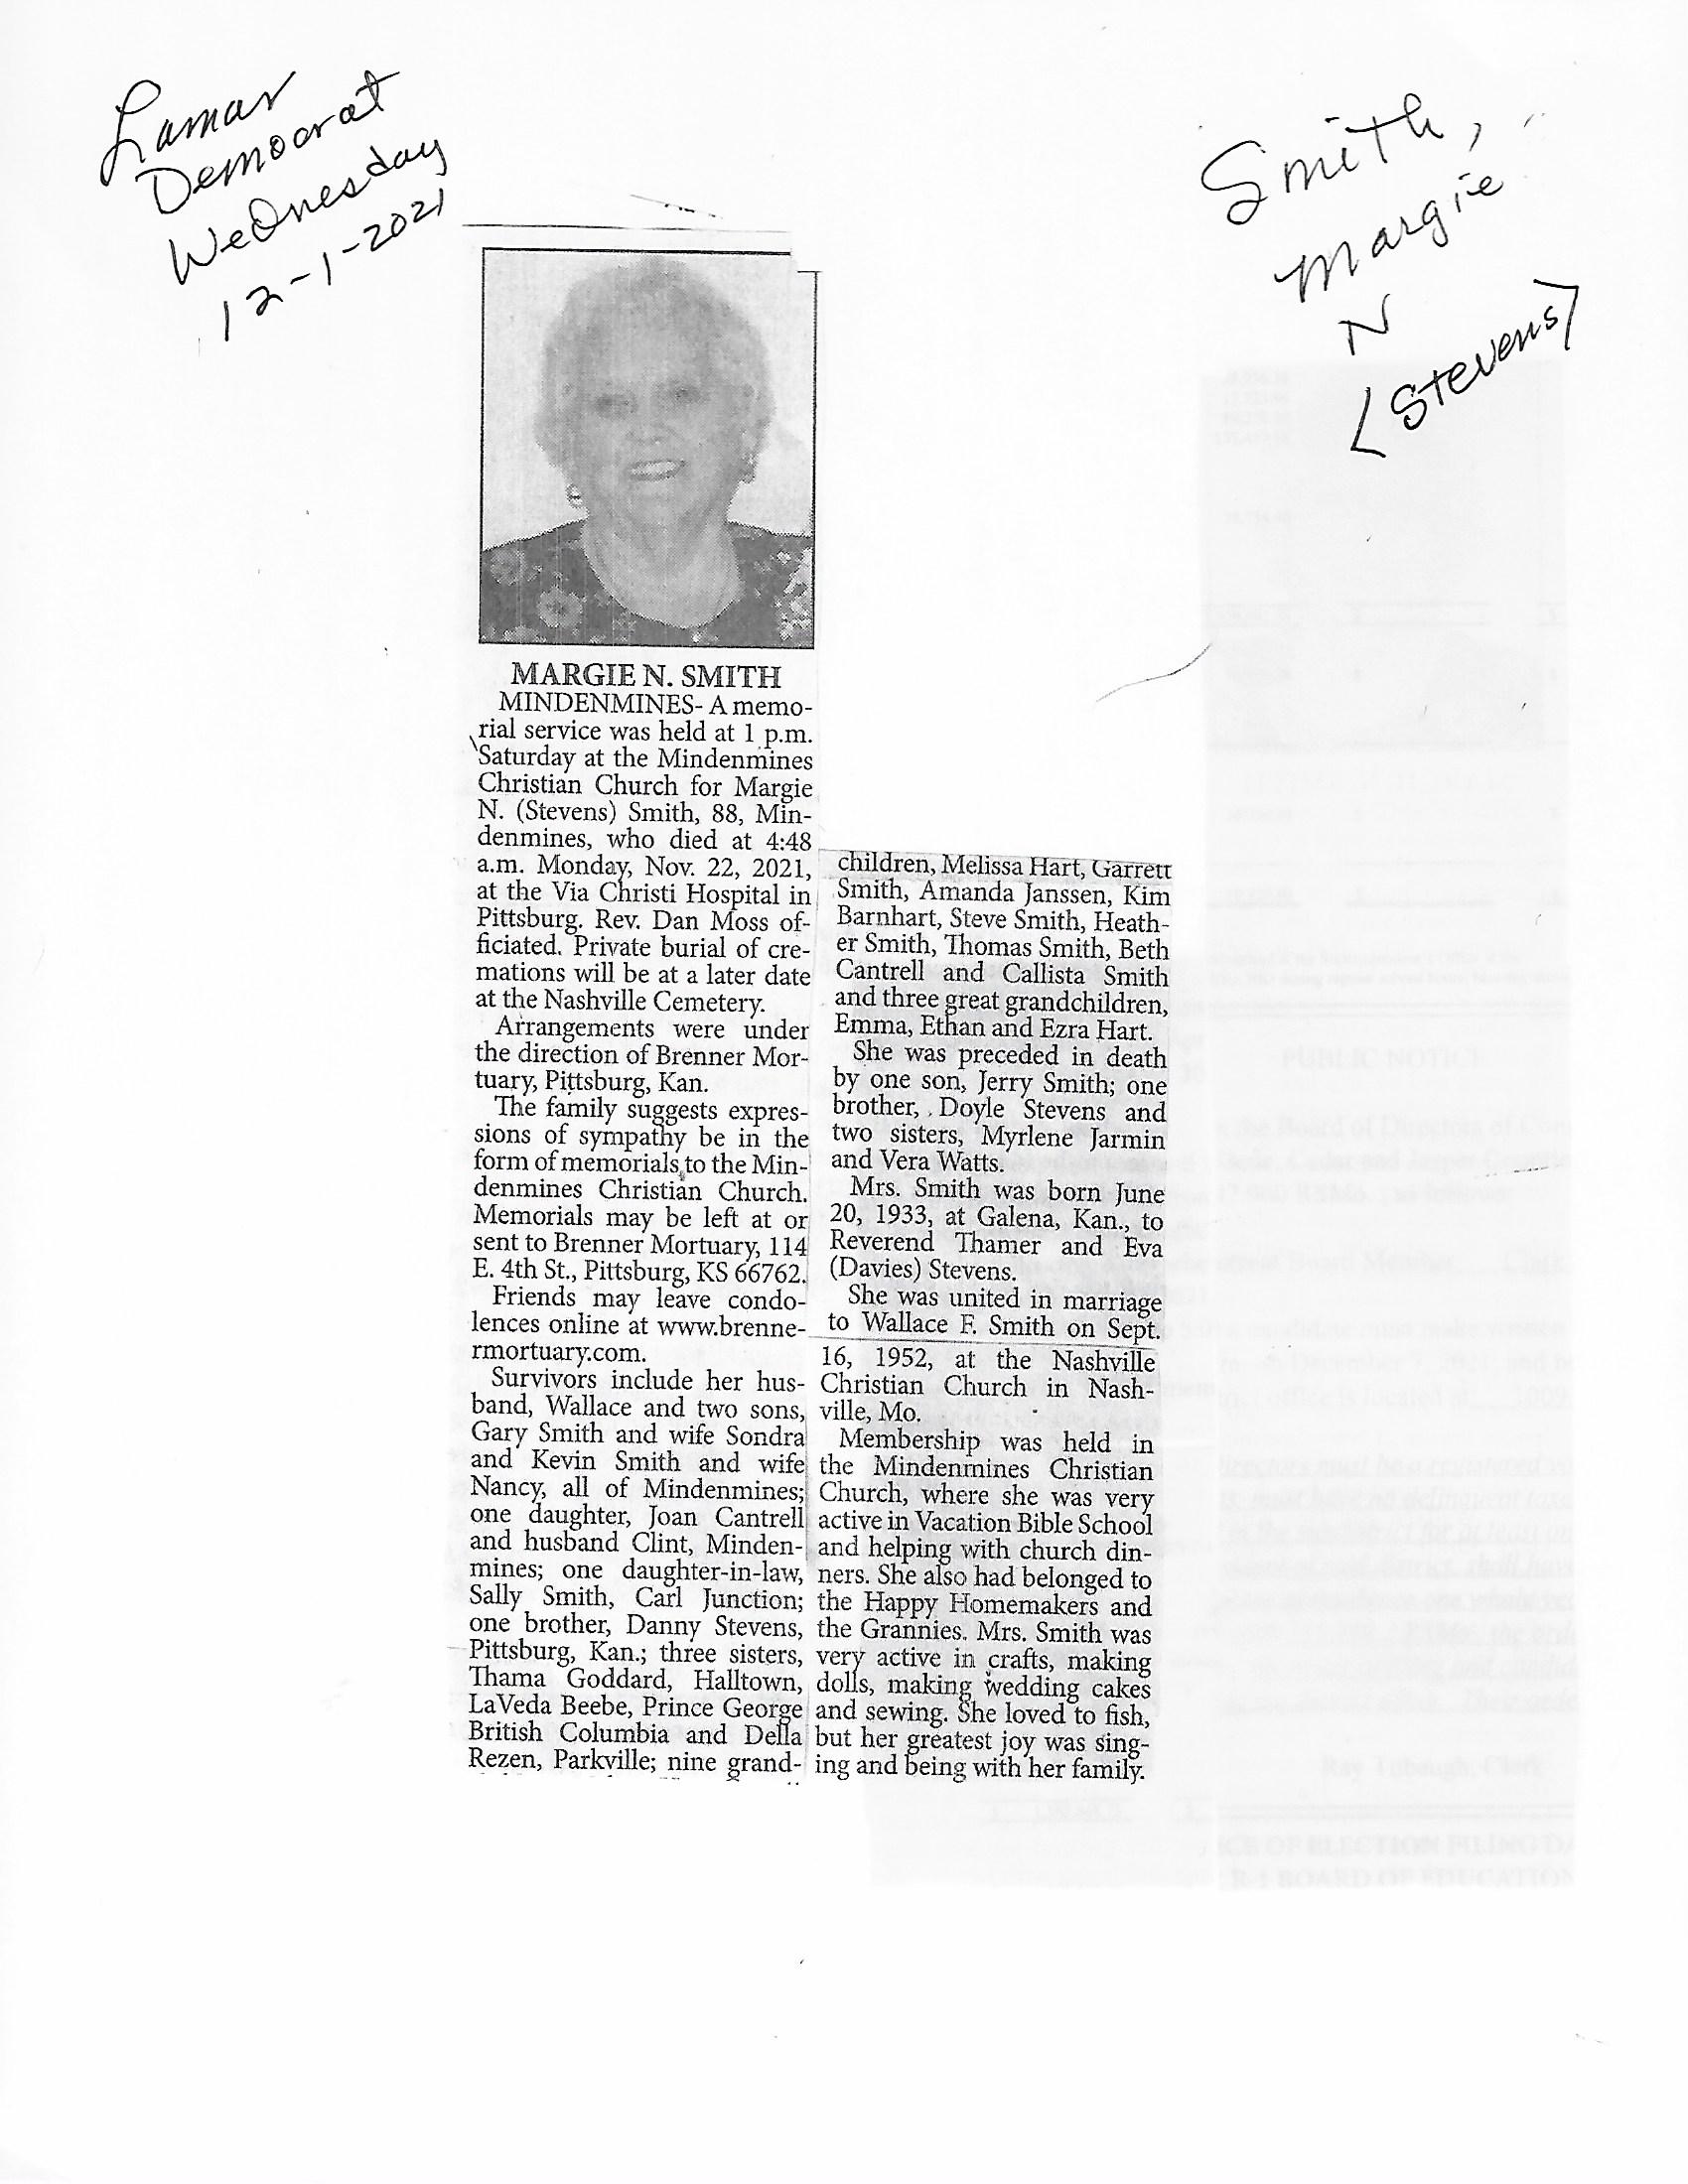 Lamar
Democrat
Wednesday
12-1-2021
Smith,
Margie
N
(Stevens)
MARGIE N. SMITH
MINDENMINES- A memo-
rial service was held at 1 p.m.
Saturday at the Mindenmines
Christian Church for Margie
N. (Stevens) Smith, 88, Min-
denmines, who died at 4:48
a.m. Monday, Nov. 22, 2021,
at the Via Christi Hospital in
Pittsburg. Rev. Dan Moss of-
ficiated. Private burial of cre-
mations will be at a later date
at the Nashville Cemetery.
Arrangements were under
the direction of Brenner Mor-
tuary, Pittsburg, Kan.
The family suggests expres-
sions of sympathy be in the
form of memorials to the Min-
denmines Christian Church.
Memorials may be left at or
sent to Brenner Mortuary, 114
E. 4th St., Pittsburg, KS 66762.
Friends may leave condo-
lences online at www.brenne-
rmortuary.com.
Survivors include her hus-
band, Wallace and two sons,
Gary Smith and wife Sondra
and Kevin Smith and wife
Nancy, all of Mindenmines;
one daughter, Joan Cantrell
and husband Clint, Minden-
mines; one daughter-in-law,
Sally Smith, Carl Junction;
one brother, Danny Stevens,
Pittsburg, Kan.; three sisters,
Thama Goddard, Halltown,
LaVeda Beebe, Prince George
British Columbia and Della
Rezen, Parkville; nine grand-
children, Melissa Hart, Garrett
Smith, Amanda Janssen, Kim
Barnhart, Steve Smith, Heath-
er Smith, Thomas Smith, Beth
Cantrell and Callista Smith
and three great grandchildren,
Emma, Ethan and Ezra Hart.
She was preceded in death
by one son, Jerry Smith; one
brother, Doyle Stevens and
two sisters, Myrlene Jarmin
and Vera Watts.
Mrs. Smith was born June
20, 1933, at Galena, Kan., to
Reverend Thamer and Eva
(Davies) Stevens.
She was united in marriage
to Wallace F. Smith on Sept.
16, 1952, at the Nashville
Christian Church in Nash-
ville, Mo.
Membership was held in
the Mindenmines Christian
Church, where she was very
active in Vacation Bible School
and helping with church din-
ners. She also had belonged to
the Happy Homemakers and
the Grannies. Mrs. Smith was
very active in crafts, making
dolls, making wedding cakes
and sewing. She loved to fish,
but her greatest joy was sing-
ing and being with her family.
PUBLIC NOTICE